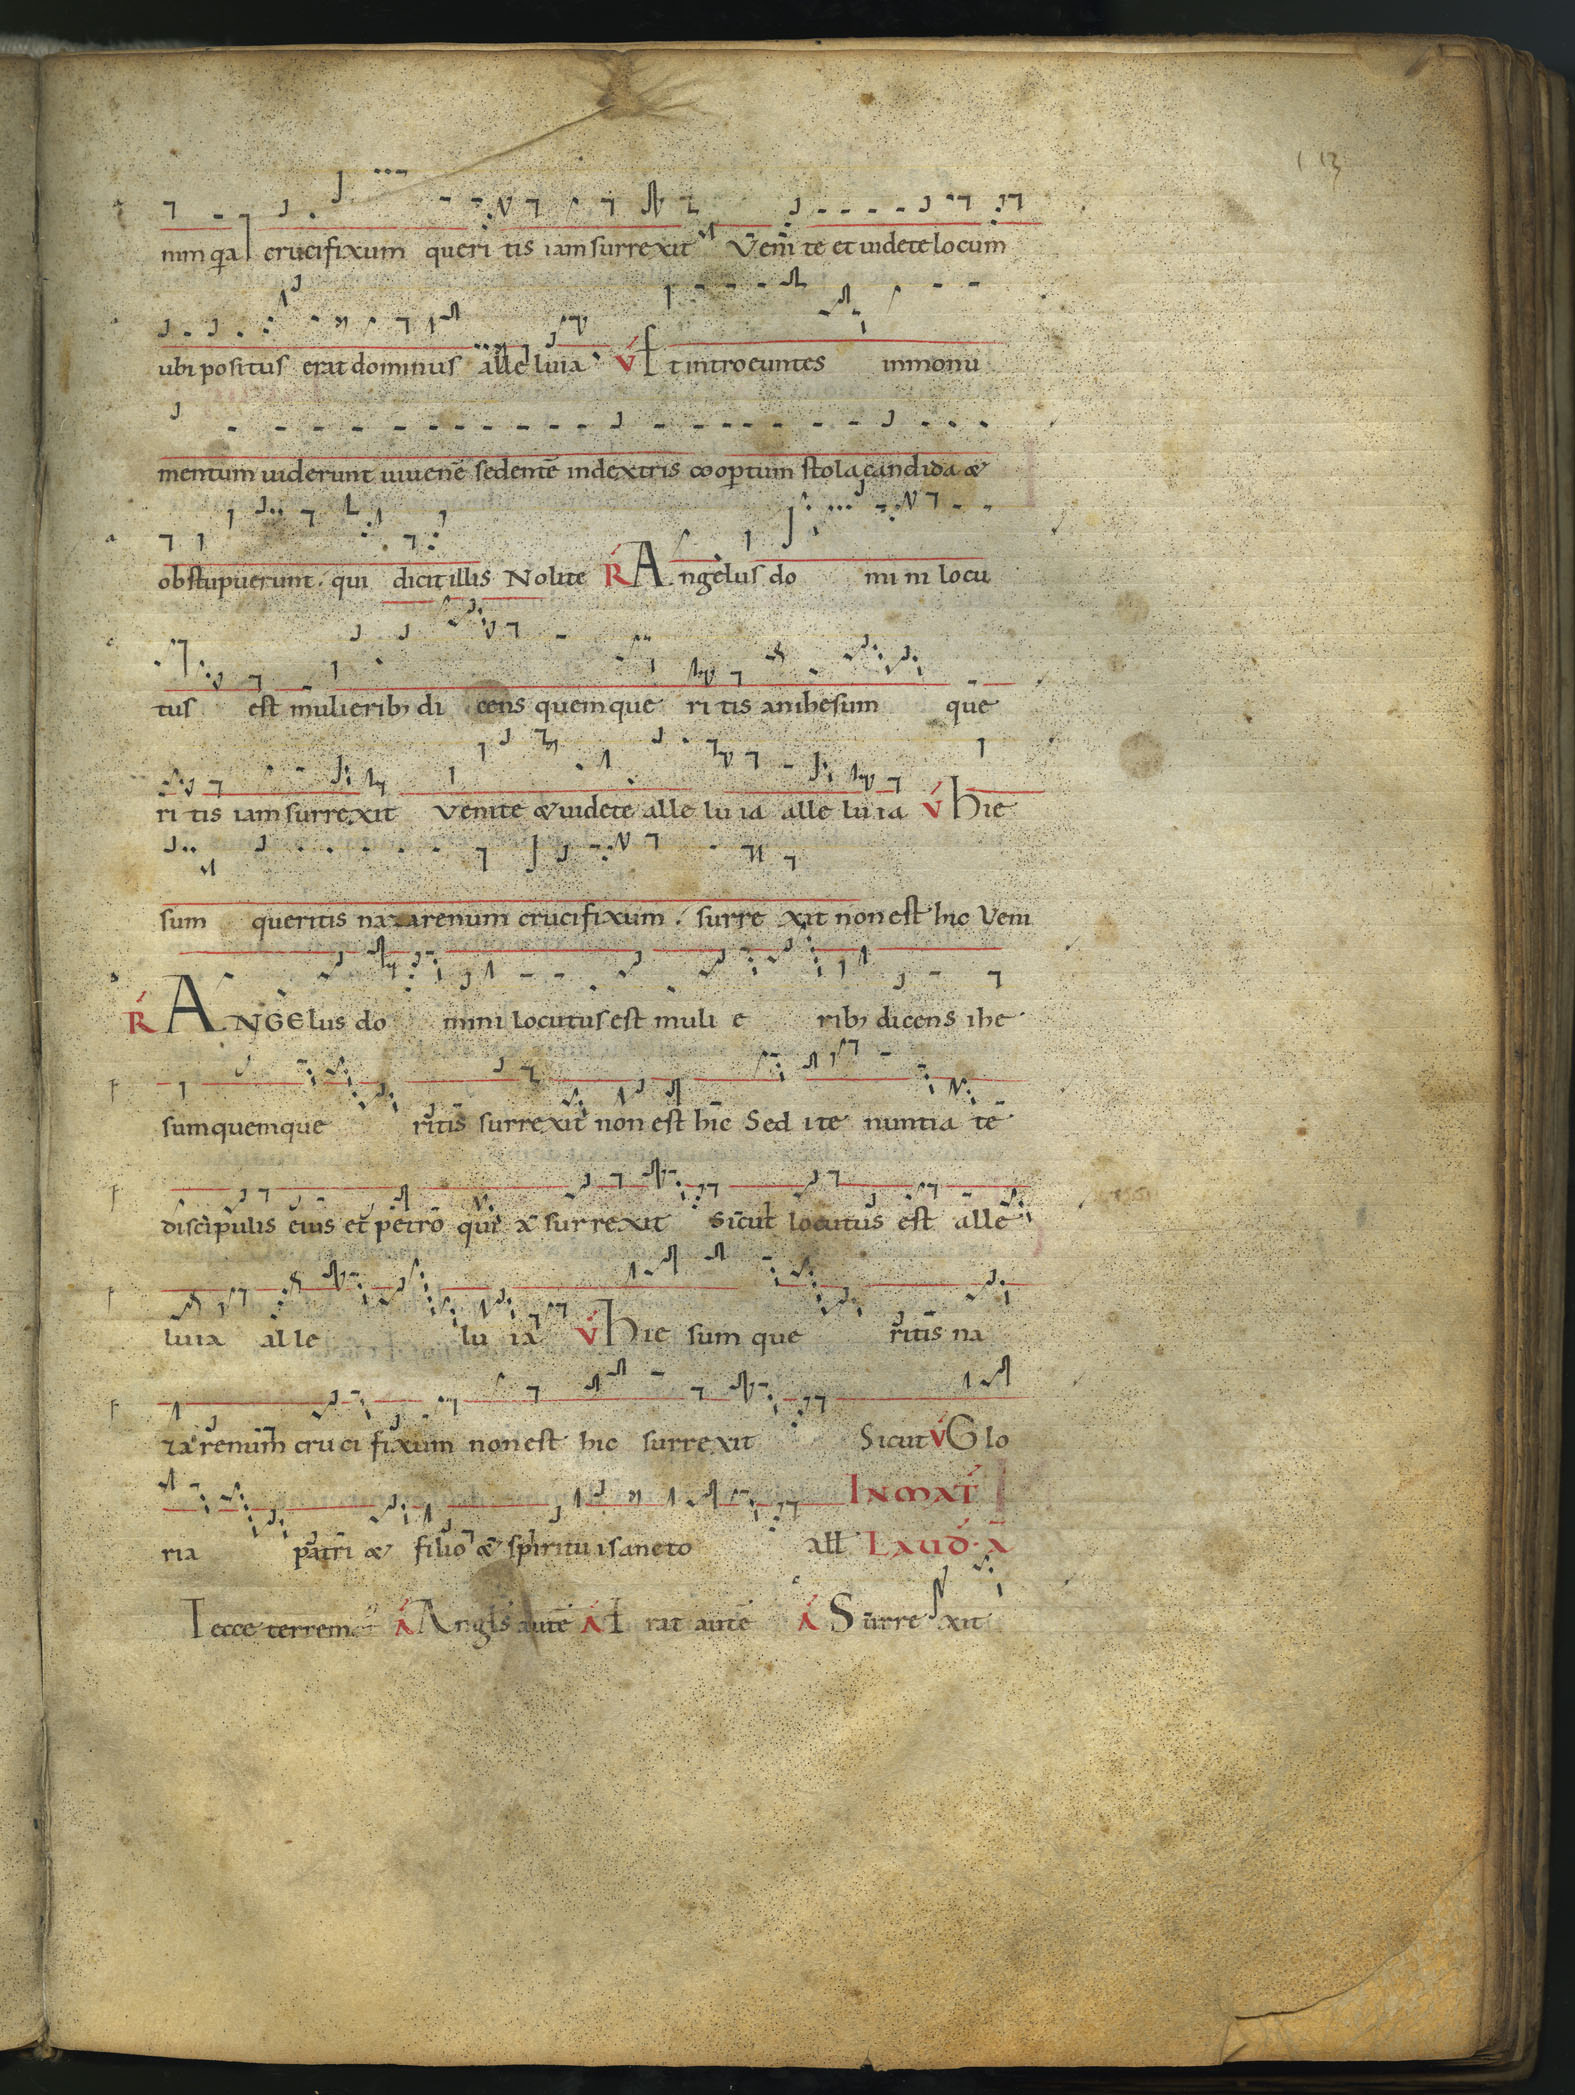 113
nim quia crucifixum queri tis iam surrexit Veni te et uidete locum
ubi positus erat dominus alle luia V Et introeuntes in monu
mentum uiderunt iuuenē sedentē in dextris coopertum stola candida &
obstupuerunt . qui dicit illis Nolite R Angelus do mi ni locu
tus est mulierib; di cens quem que ri tis an ihesum que
ri tis iam surrexit Venite & uidete alle lu ia alle lu ia V hie
sum queritis nazarenum crucifixum . surre xit non est hic Veni
R ANGElus do mini locutus est muli e rib; dicens ihe
sum quem que ritis surrexit non est hic Sed ite nuntia te
discipulis eius et petro qui a surrexit Sicut locutus est alle
luia al le lu ia V hie sum que ritis na
zarenum cru ci fixum non est hic surrexit Sicut V Glo
IN MAT
ria patri & filio & spiritu i sancto all LAUD. A
Et ecce terrem A Angls autē A Erat autē A Surre xit